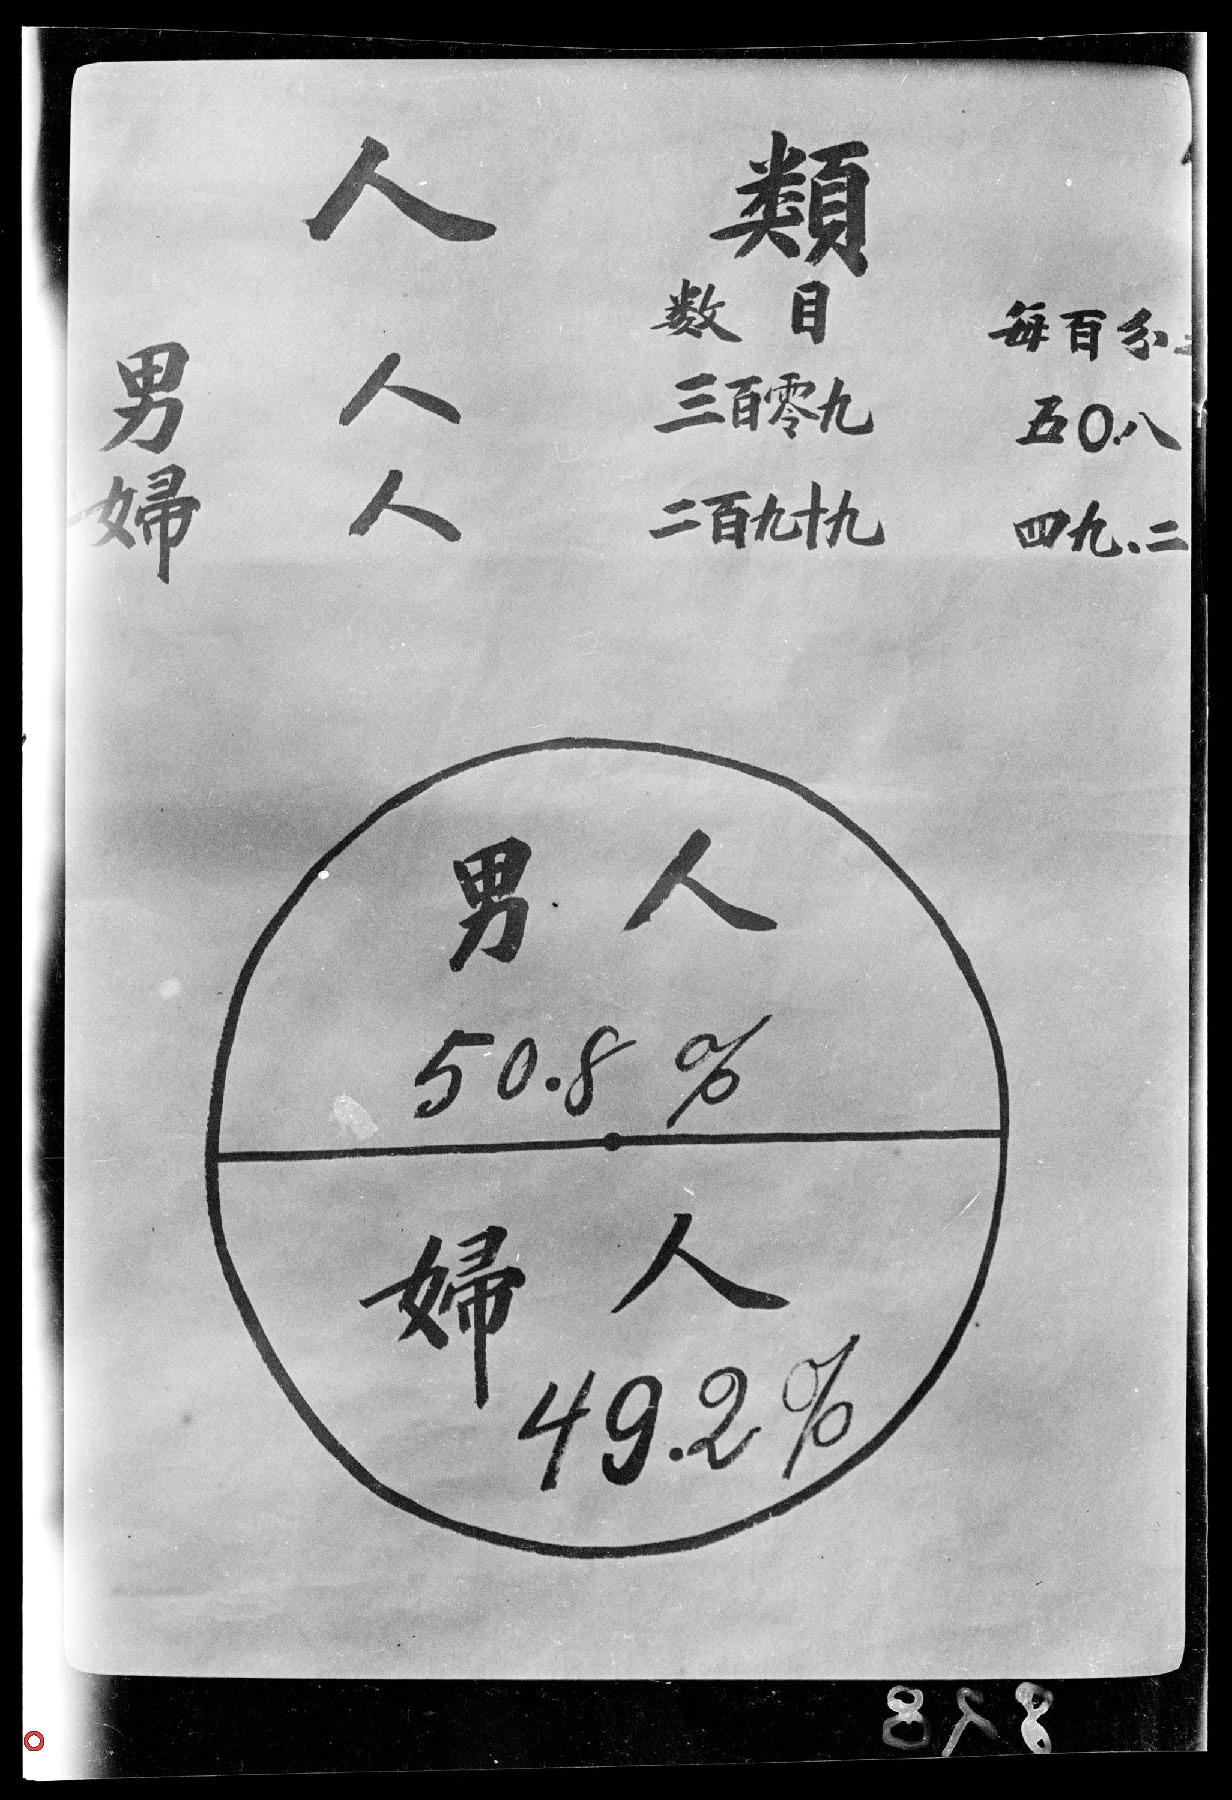 人 類
数目 每百分
男人 三百零九 五〇.八
婦人 二百九十九 四九.二
男人
50.8 %
婦人
49.2 %